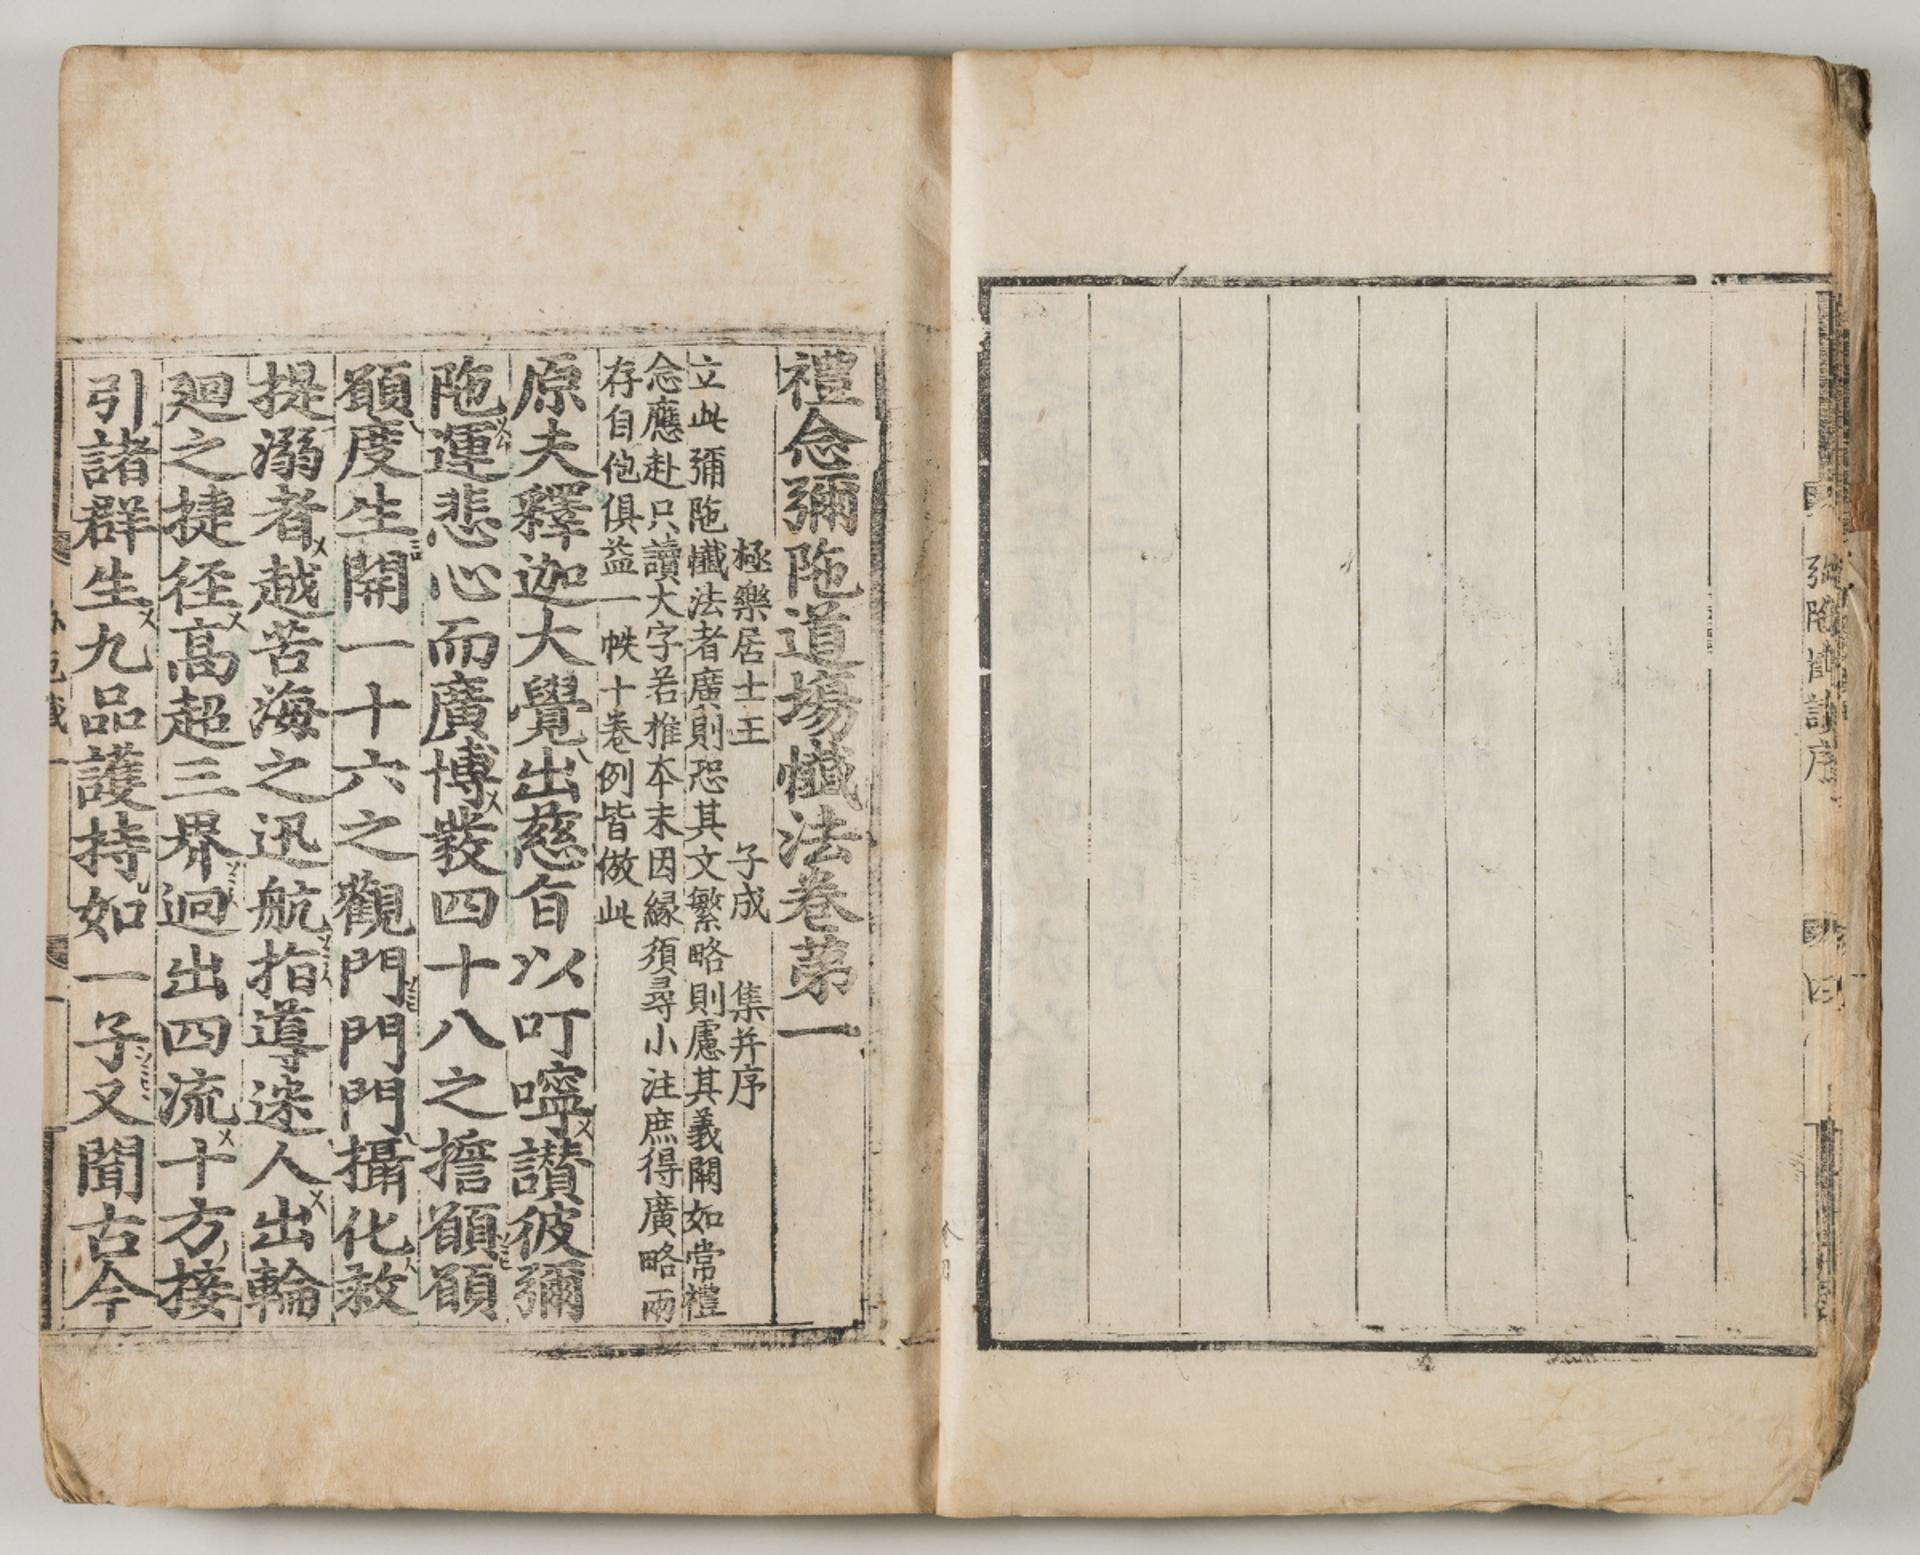 彌陁懺讃序
四
禮念彌陁道場懺法卷苐一
極樂居士王子成集并序
立此彌陁懺法者廣則恐其文繁略則慮其義闕如常禮
念應赴只讀大字若推夲末因緣須尋小注庶得廣略兩
存自他俱益一帙十卷例皆倣此
原夫釋迦大覺出慈旨以叮嚀讃彼彌
陁運悲心而廣博發四十八之擔願願
願度生開一十六之觀門門門攝化救
提溺者越苦海之迅航指導迷人出輪
廻之捷徑髙超三界迥出四流十方接
引諸群生九品護持如一子又聞古今